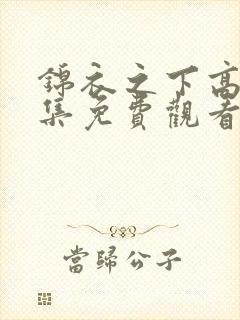 錦衣之下高
集免費觀看
當歸公子